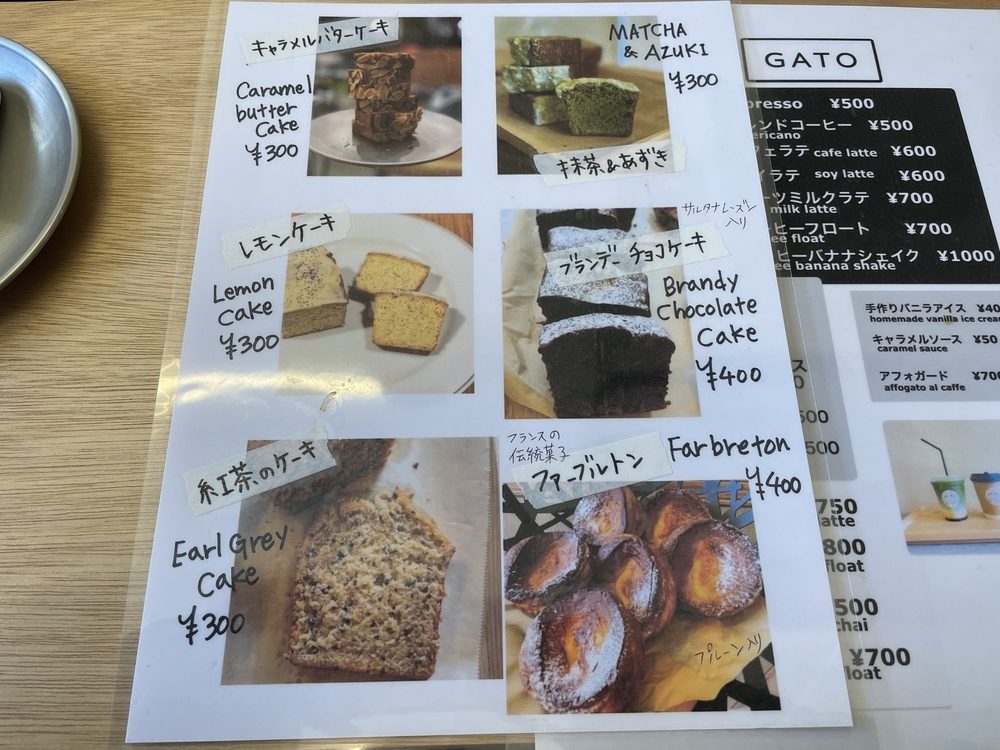 キャラメルバターケーキ
Caramel
butter
Cake
¥300
MATCHA
& AZUKI
¥300
抹茶&あずき
レモンケーキ
Lemon
Cake
¥300
サルタナレーズン
入り
ブランデーチョコケーキ
Brandy
Chocolate
Cake
¥400
紅茶のケーキ
Earl Grey
Cake
¥300
フランスの
伝統菓子
ファーブルトン
Farbreton
¥400
プルーン入り
GATO
presso ¥500
レンドコーヒー ¥500
ericano
フェラテ cafe latte ¥600
イラテ soy latte ¥600
ーツミルクラテ ¥700
milk latte
ーヒーフロート ¥700
ee float
ヒーバナナシェイク ¥1000
ee banana shake
手作りバニラアイス ¥40
homemade vanilla ice crea
キャラメルソース ¥50
caramel sauce
アフォガード ¥700
affogato al caffe
ス
0
500
500
750
latte
800
float
500
chai
¥700
float